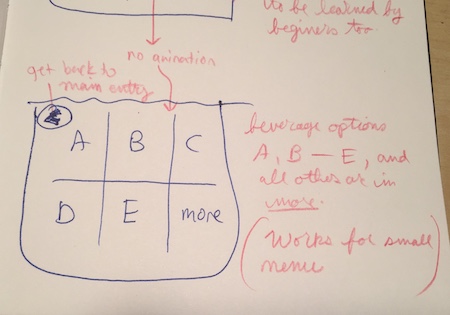 to be learned by
beginers too.
no animation
get back to
main entry
A B C
D E more
beverage options
A, B — E, and
all other are in
more.
(Works for small
menu)